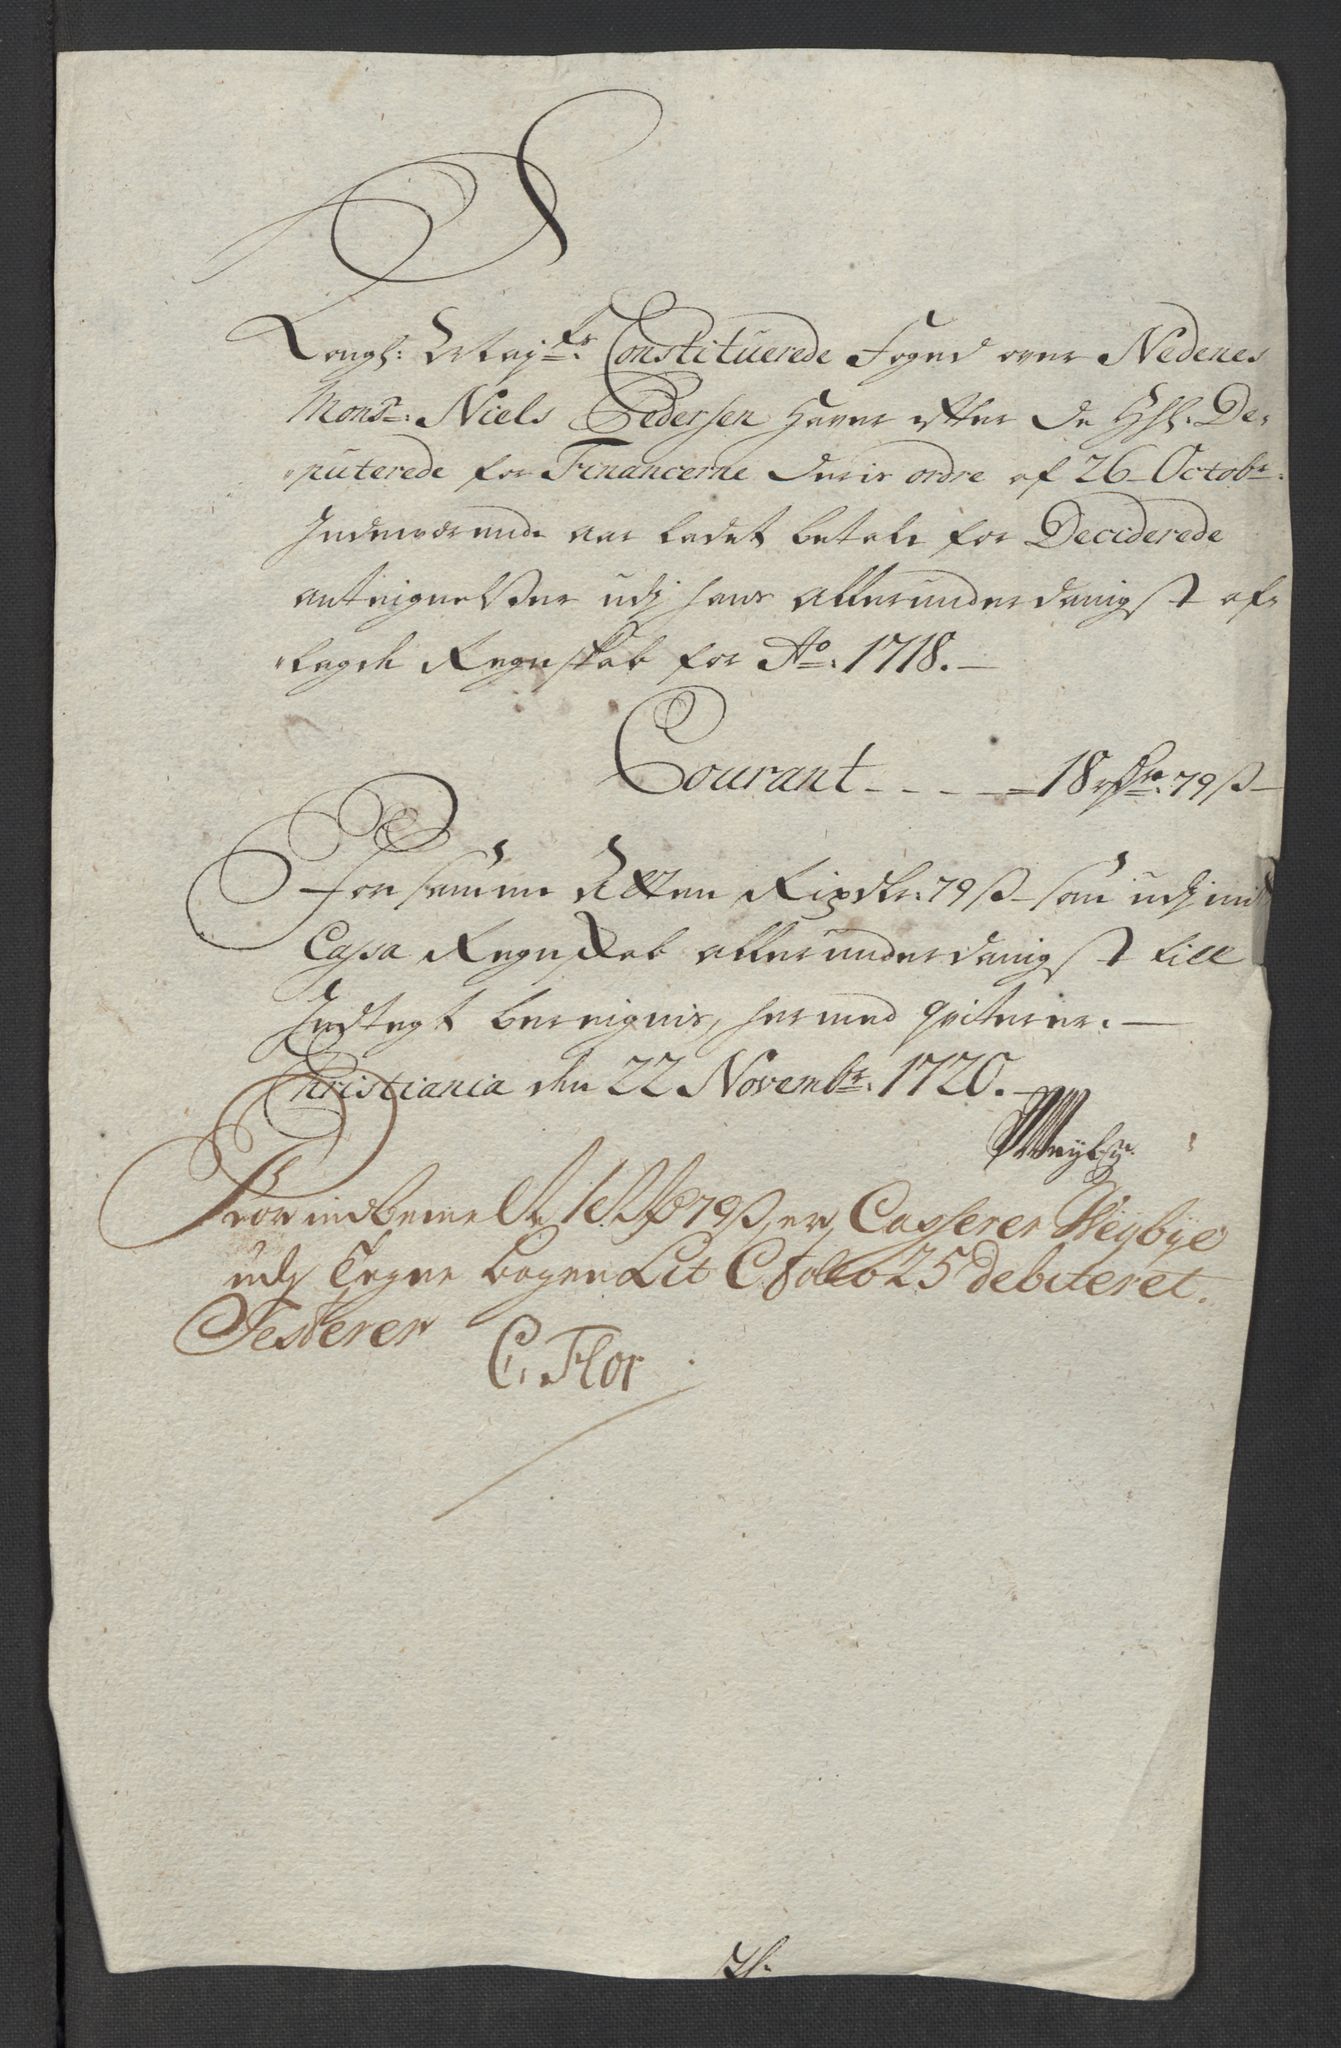 Kongl: Mayts: Constituerede Foged over Nedenes
Monsr: Niels Pedersen Haver efter de HHl. De-
puterede for Financerne deris ordre af 26 Octobr:
Indeværende aar ladet betale for Deciderede
antegnelsser udj hans allerunderdanigst af-
lagde Regnskab for Ao: 1718.
Courant - - - - 18 rdr: 79 ß
For samme Atten Rixdlr: 79 ß som udj mit
Cassa Regnskab allerunderdanigst till
Indtegt bereignis, hermed qviterer.
Christiania den 22 Novembr: 1720.
Weybye
Forindbemelte 18 Rdr 79 ß, er, Casserer Weybye
udj Tegne bogen Lit C folio 25 debiteret.
Testerer
C. Flor